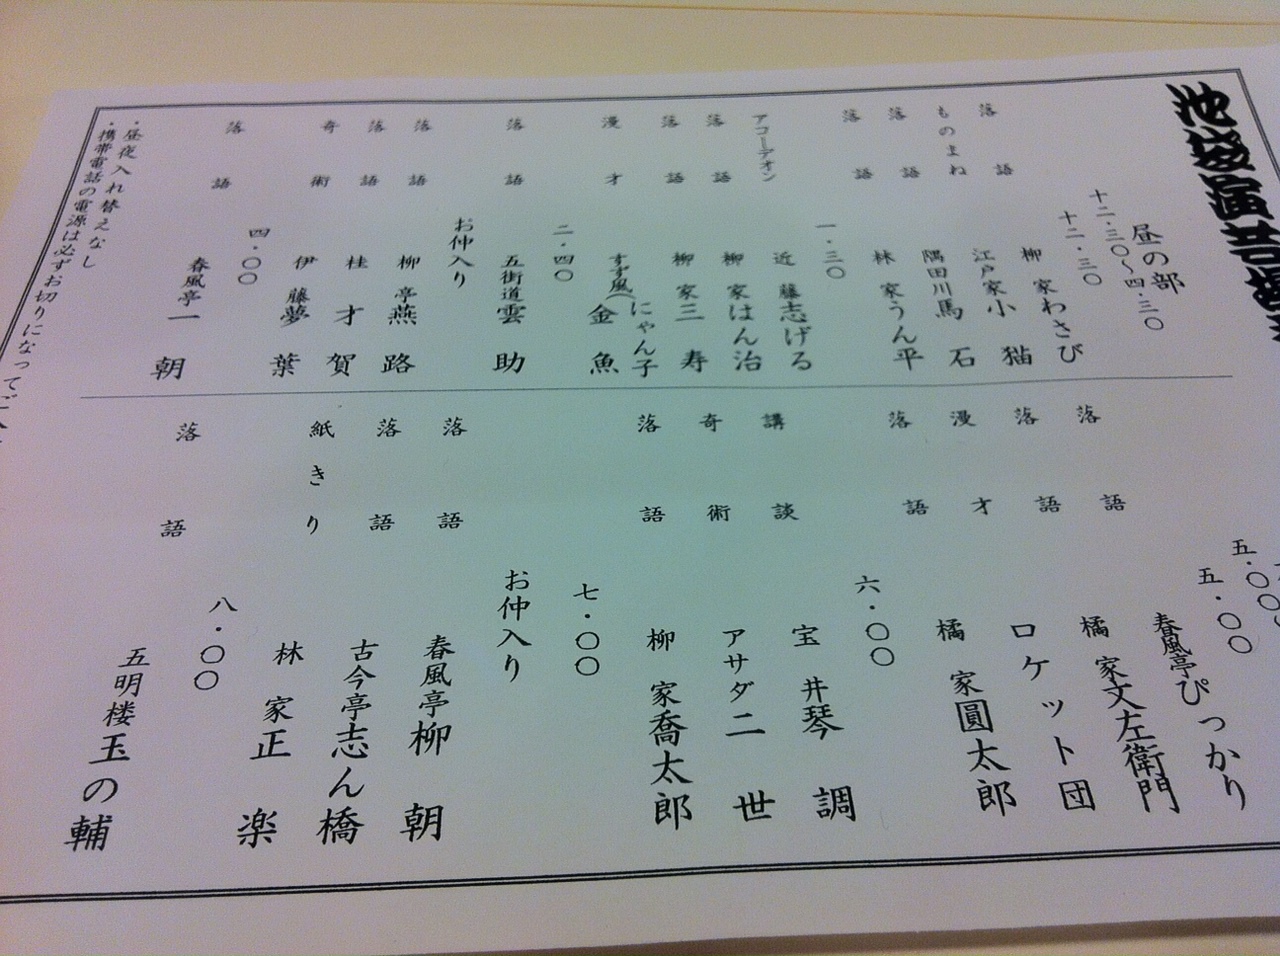 池袋演芸場
昼の部
十二・三〇〜四・三〇
十二・三〇
柳家わさび
落語 江戸家小猫
ものまね 隅田川馬石
落語 林家うん平
落語
一・三〇
アコーデオン 近藤志げる
落語 柳家はん治
落語 柳家三寿
漫才 すず風(にゃん子 金魚
二・四〇
落語 五街道雲助
お仲入り
落語 柳亭燕路
落語 桂才賀
奇術 伊藤夢葉
四・〇〇
落語 春風亭一朝
・昼夜入れ替えなし
・携帯電話の電源は必ずお切りになって
五・〇〇
五・〇〇
春風亭ぴっかり
落語 橘家文左衛門
落語 ロケット団
漫才 橘家圓太郎
落語
六・〇〇
講談 宝井琴調
奇術 アサダ二世
落語 柳家喬太郎
七・〇〇
お仲入り
落語 春風亭柳朝
落語 古今亭志ん橋
紙きり 林家正楽
八・〇〇
落語 五明楼玉の輔